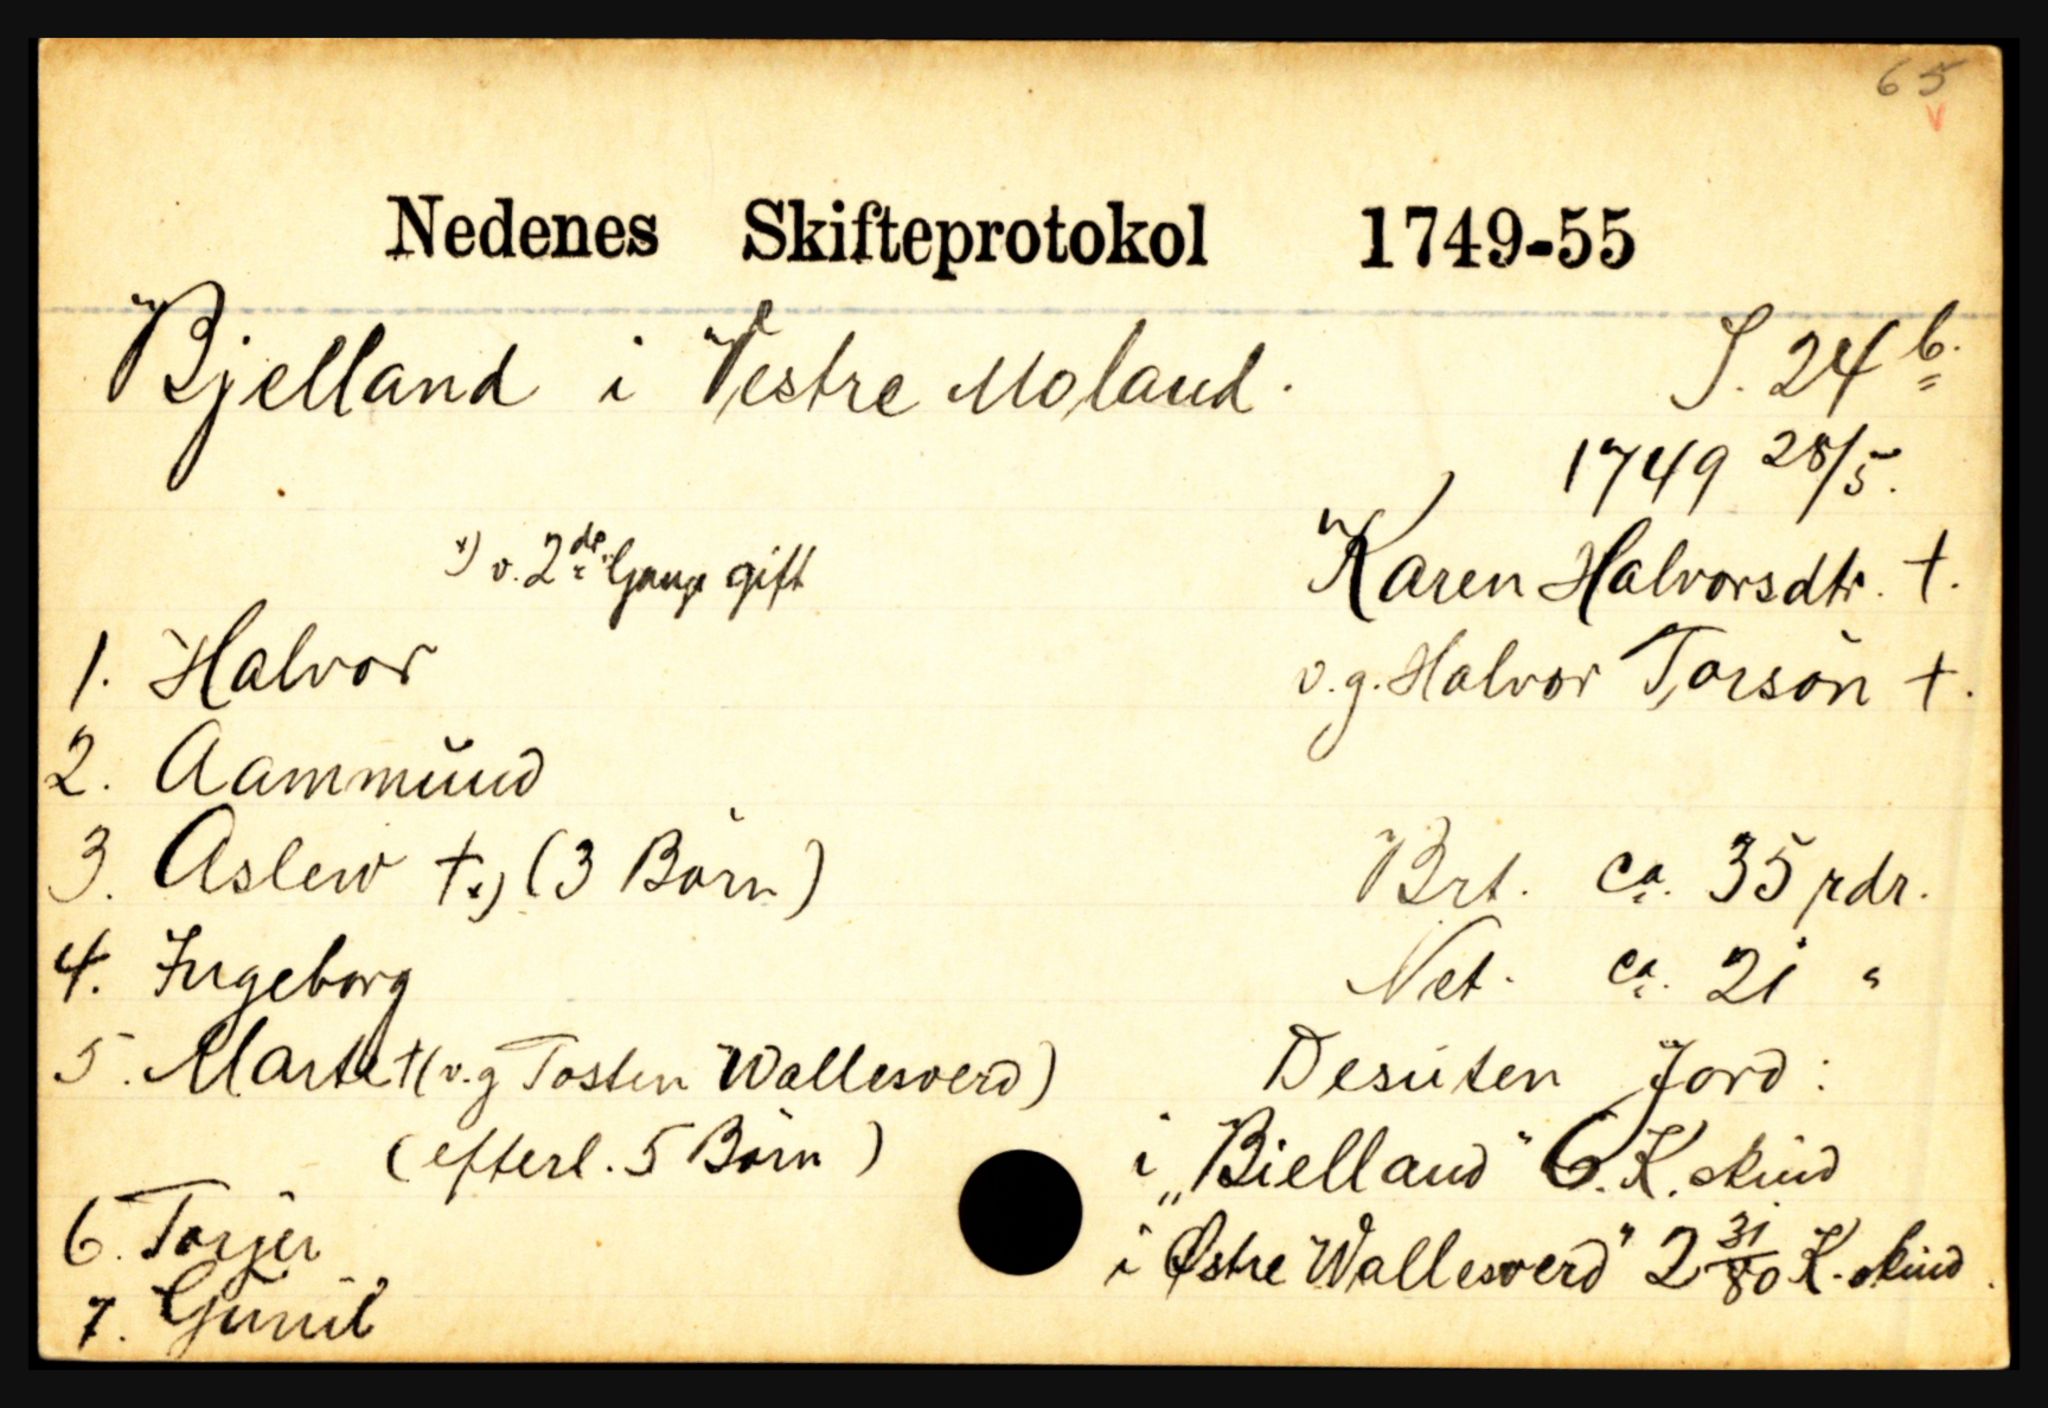 65
Nedenes Skifteprotokol 1749-55
Bjelland i Vestre Moland.
S. 24 b.
1749 28/5.
x) v. 2de Gang gift
Karen Halvorsdtr. †.
v.g. Halvor Torsøn †.
1. Halvor
2. Aammund
3. Aslew † x) (3 Børn)
4. Ingeborg
5. Marte † (v.g Tosten Wallesverd)
(efterl. 5 Børn)
6. Torjer
7. Gunil
Brt. ca. 35 rdr.
Net. ca. 21 "
Desuten Jord:
i „Bielland" 6. K. skind
i Østre Wallesverd" 2 31/80 K. skind.